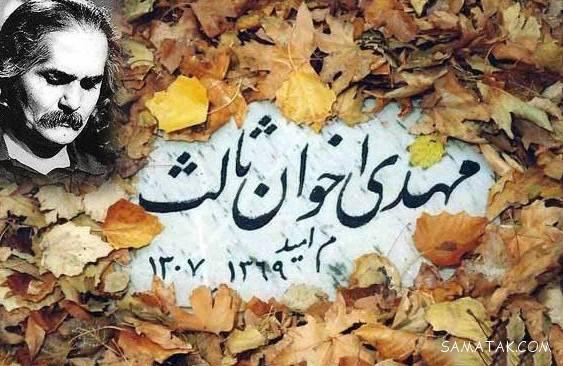 مهدی اخوان ثالث
م امید
۱۳۰۷ ۱۳۶۹
SAMATAK.COM